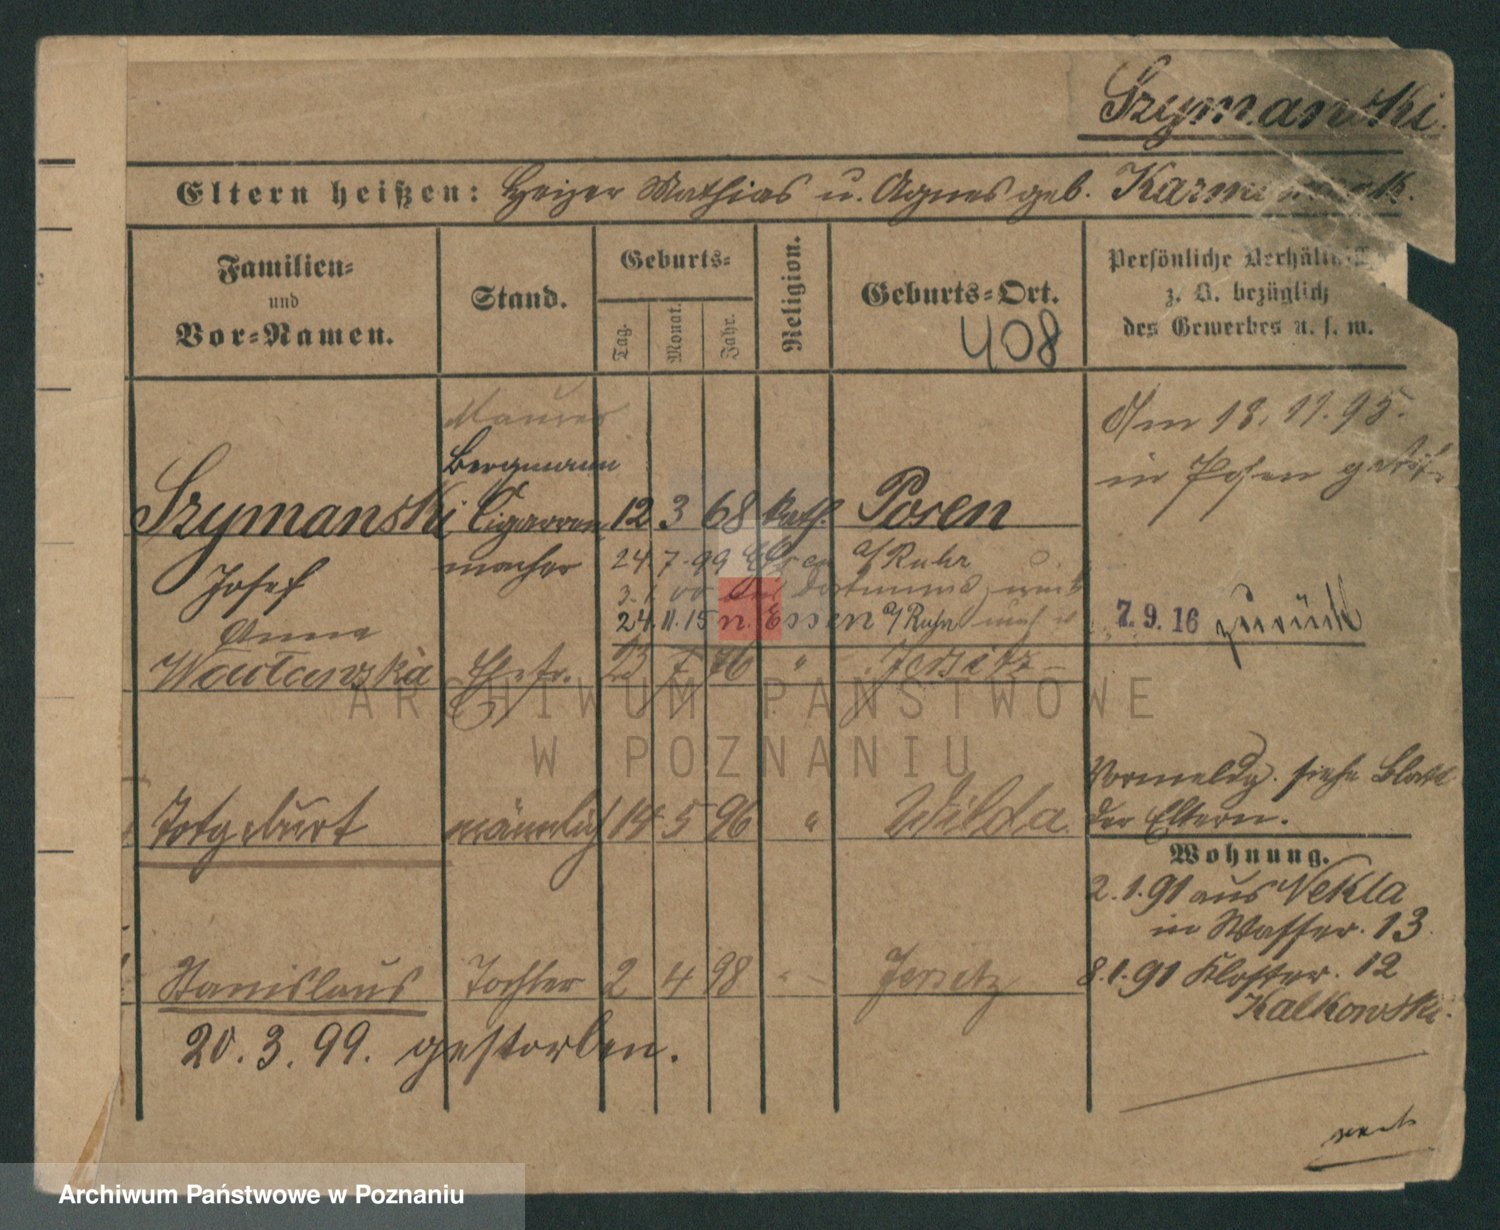 Szymanski.
Eltern heißen: Heizer Mathias u. Agnes geb.
Familien=
und
Vor=Namen.
Stand.
Geburts=
Tag.
Monat.
Jahr.
Religion.
Geburts=Ort.
408
Persönliche
z. B. bezüglich
des Gewerbes u. s. w.
Maurer
Bergmann
Szymanski Cigarren 12 3 68 kath. Posen
Josef macher
Am 18. 11. 95.
in Posen
24. 7. 99 Essen a/Ruhr
24. 11. 15 n. Essen a/Ruhr
7. 9. 16 zurück
Anna
Ehefr. 23 7 76 " Jersitz
ARCHIWUM PAŃSTWOWE
W POZNANIU
Totgeburt männlich 14 5 96 " Wilda
Vormeldg. siehe Blatt
der Eltern.
Wohnung.
2. 1. 91 aus Nekla
in Wasser. 13.
8. 1. 91 Kloster. 12
Kalkowski.
Stanislaus Tochter 2 4 98 " Jersitz
20. 3. 99. gestorben.
Archiwum Państwowe w Poznaniu